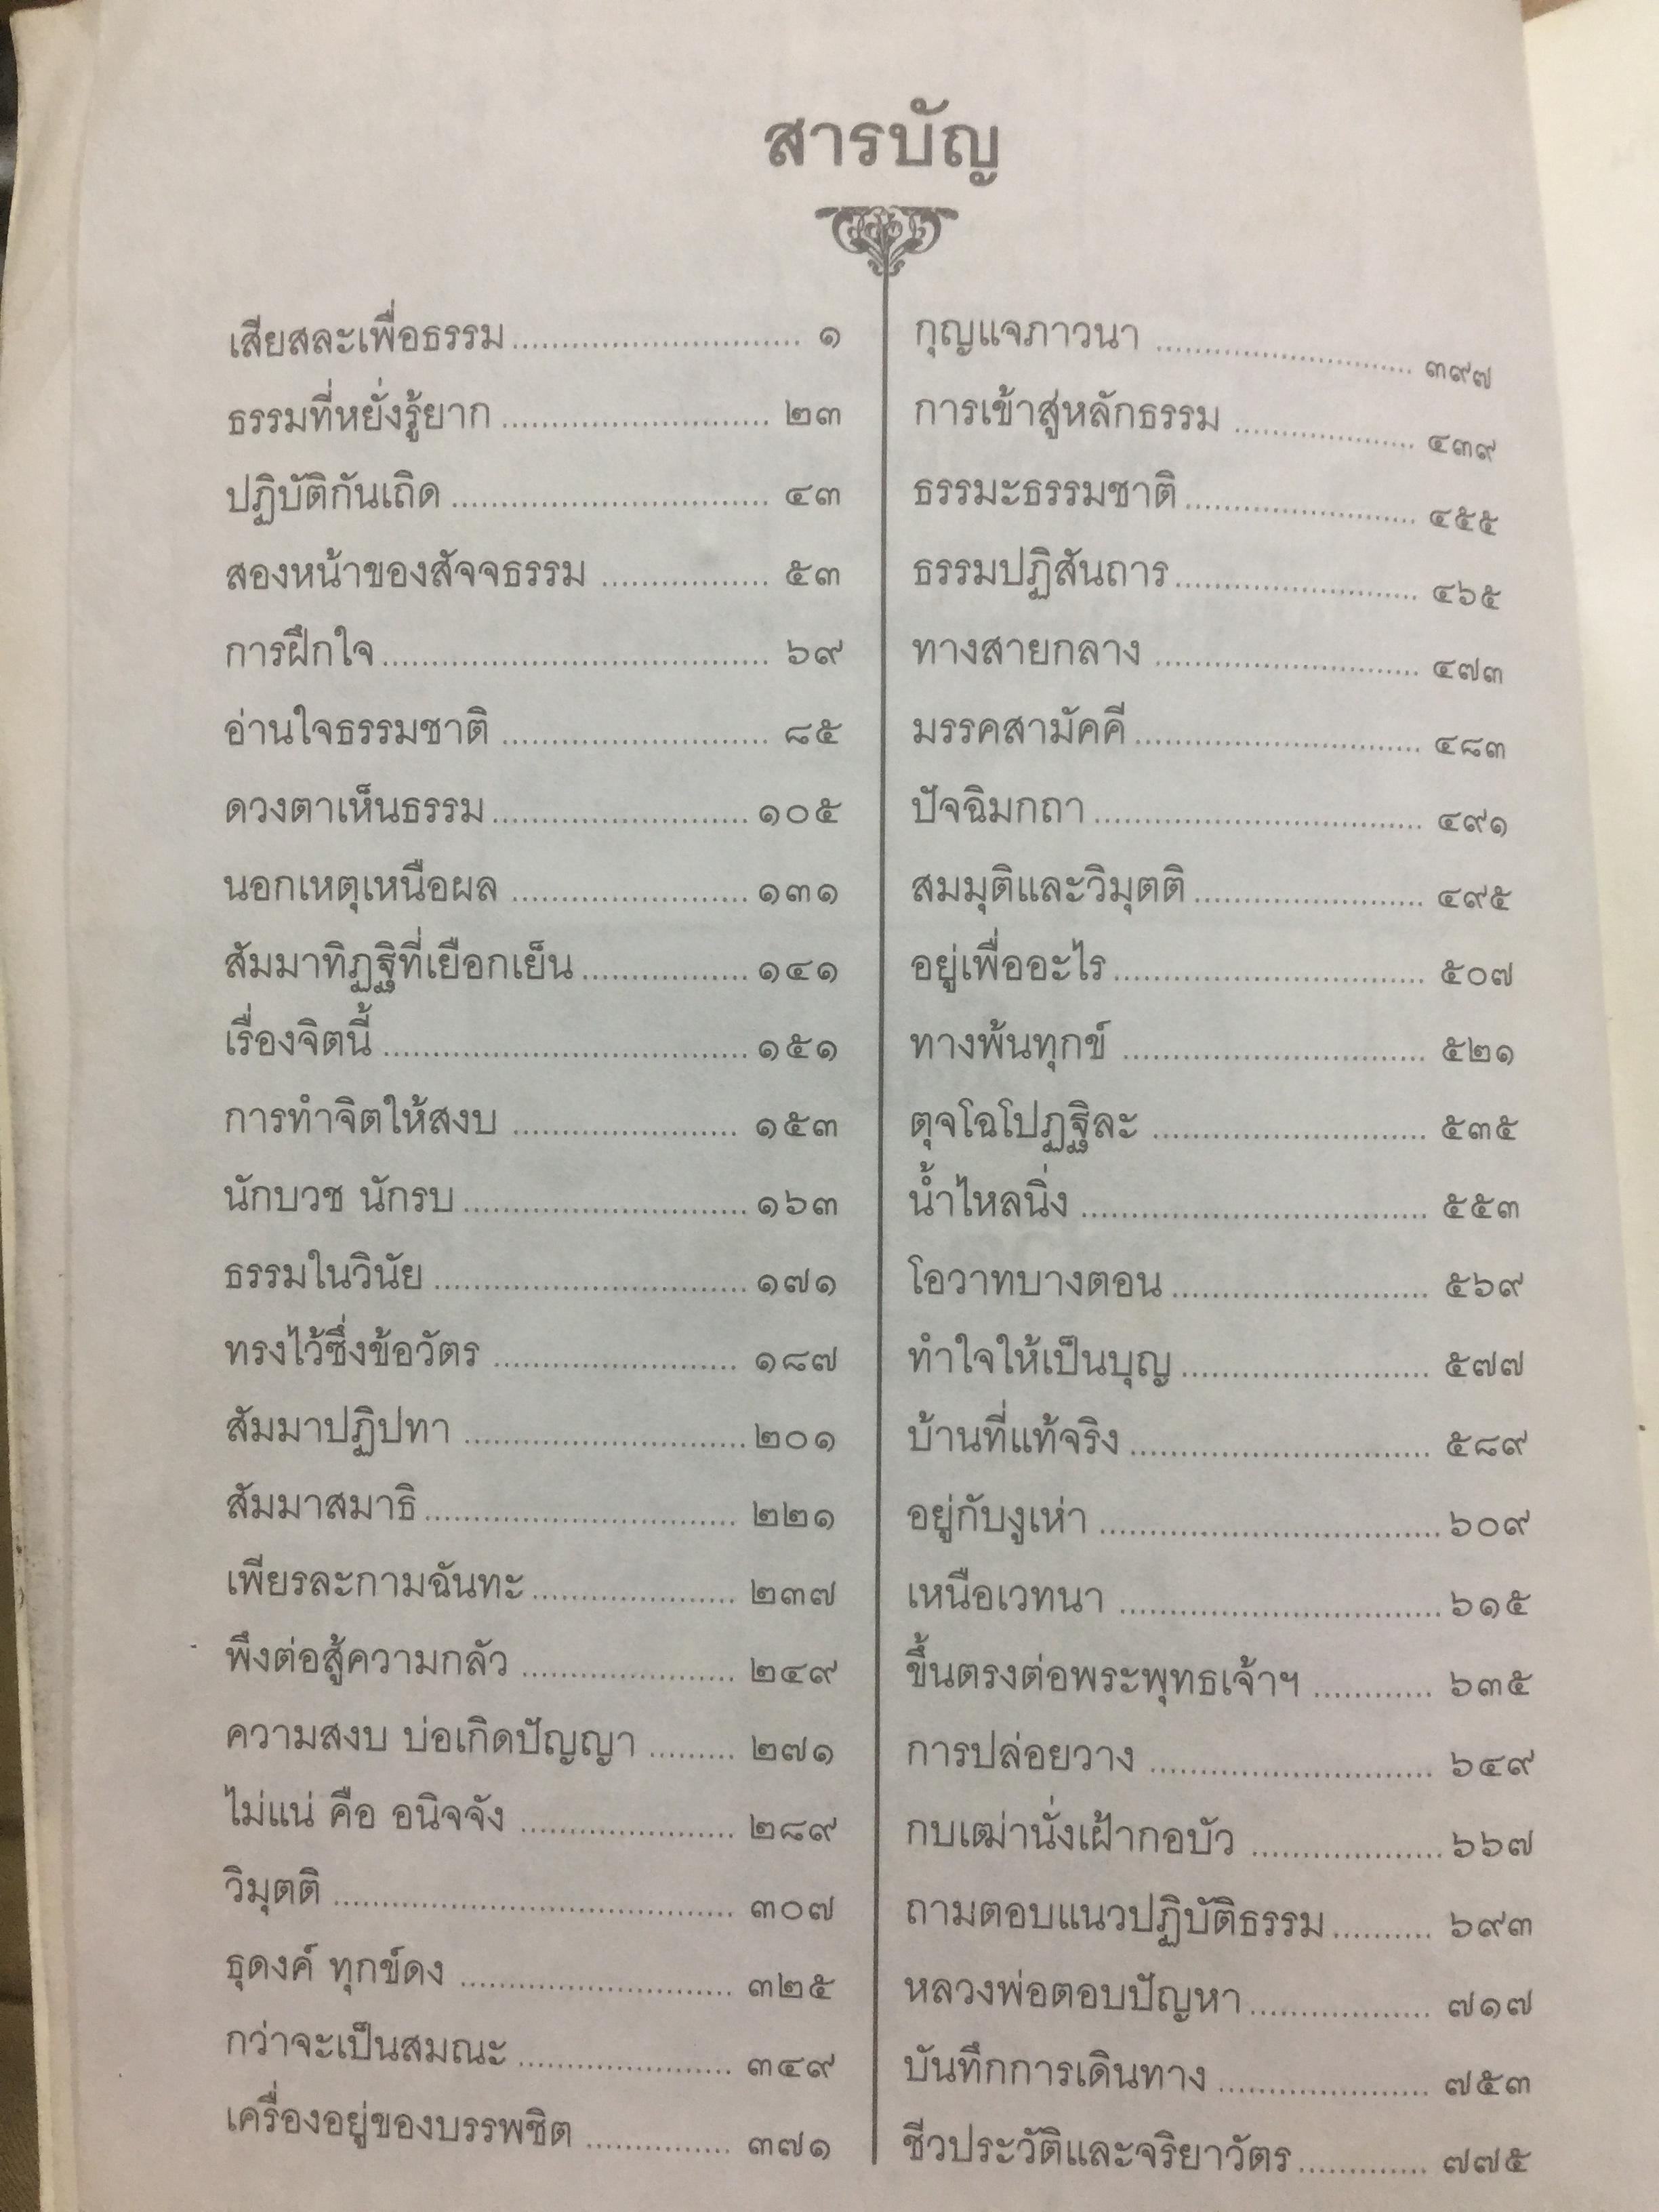 สารบัญ
เสียสละเพื่อธรรม ............................. ๑
ธรรมที่หยั่งรู้ยาก ........................... ๒๓
ปฏิบัติกันเถิด ................................ ๔๓
สองหน้าของสัจจธรรม ................. ๕๓
การฝึกใจ ....................................... ๖๙
อ่านใจธรรมชาติ ........................... ๘๕
ดวงตาเห็นธรรม .......................... ๑๐๕
นอกเหตุเหนือผล ........................ ๑๓๑
สัมมาทิฏฐิที่เยือกเย็น ................. ๑๔๑
เรื่องจิตนี้ ..................................... ๑๕๑
การทำจิตให้สงบ ....................... ๑๕๓
นักบวช นักรบ ............................. ๑๖๓
ธรรมในวินัย ................................ ๑๗๑
ทรงไว้ซึ่งข้อวัตร ......................... ๑๘๗
สัมมาปฏิปทา ............................. ๒๐๑
สัมมาสมาธิ ................................ ๒๒๑
เพียรละกามฉันทะ ..................... ๒๓๗
พึงต่อสู้ความกลัว ...................... ๒๔๙
ความสงบ บ่อเกิดปัญญา ......... ๒๗๑
ไม่แน่ คือ อนิจจัง ...................... ๒๘๙
วิมุตติ ......................................... ๓๐๗
ธุดงค์ ทุกข์ดง ............................ ๓๒๕
กว่าจะเป็นสมณะ ...................... ๓๔๙
เครื่องอยู่ของบรรพชิต ............... ๓๗๑
กุญแจภาวนา .......................... ๓๙๗
การเข้าสู่หลักธรรม ................... ๔๓๙
ธรรมะธรรมชาติ ........................ ๔๕๕
ธรรมปฏิสันถาร ......................... ๔๖๕
ทางสายกลาง ........................... ๔๗๓
มรรคสามัคคี ............................. ๔๘๓
ปัจฉิมกถา ................................. ๔๙๑
สมมุติและวิมุตติ ....................... ๔๙๕
อยู่เพื่ออะไร ............................... ๕๐๗
ทางพ้นทุกข์ .............................. ๕๒๑
ตุจโฉโปฏฐิละ ........................... ๕๓๕
น้ำไหลนิ่ง .................................. ๕๕๓
โอวาทบางตอน ......................... ๕๖๙
ทำใจให้เป็นบุญ ......................... ๕๗๗
บ้านที่แท้จริง .............................. ๕๘๙
อยู่กับงูเห่า ................................. ๖๐๙
เหนือเวทนา ................................ ๖๑๕
ขึ้นตรงต่อพระพุทธเจ้าฯ ............ ๖๓๕
การปล่อยวาง ............................ ๖๔๙
กบเฒ่านั่งเฝ้ากอบัว ................... ๖๖๗
ถามตอบแนวปฏิบัติธรรม .......... ๖๙๓
หลวงพ่อตอบปัญหา .................. ๗๑๗
บันทึกการเดินทาง ..................... ๗๕๓
ชีวประวัติและจริยาวัตร ............. ๗๗๕